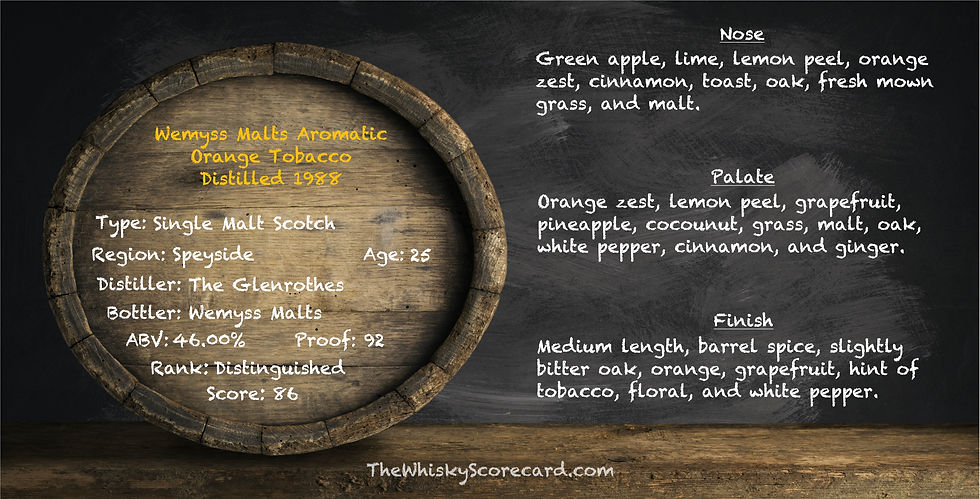 Wemyss Malts Aromatic
Orange Tobacco
Distilled 1988
Type: Single Malt Scotch
Region: Speyside Age: 25
Distiller: The Glenrothes
Bottler: Wemyss Malts
ABV: 46.00% Proof: 92
Rank: Distinguished
Score: 86
Nose
Green apple, lime, lemon peel, orange
zest, cinnamon, toast, oak, fresh mown
grass, and malt.
Palate
Orange zest, lemon peel, grapefruit,
pineapple, cocounut, grass, malt, oak,
white pepper, cinnamon, and ginger.
Finish
Medium length, barrel spice, slightly
bitter oak, orange, grapefruit, hint of
tobacco, floral, and white pepper.
TheWhiskyScorecard.com